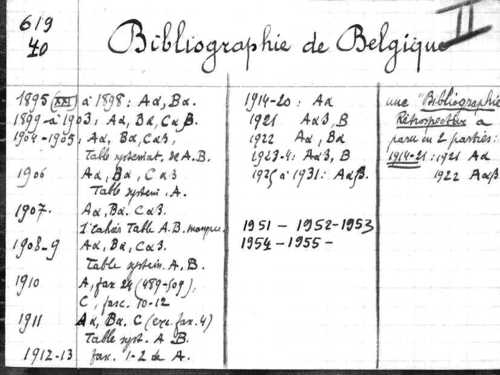 619
40
II
Bibliographie de Belgique
1895 (XXI) à 1898 : Aα, Bα.
1899 à 1903 : Aα, Bα, Cαβ.
1904-1905 : Aα, Bα, Cαβ,
Table systémat. de A.B.
1906 Aα, Bα, Cαβ
Table systém. A.
1907. Aα, Bα. Cαβ.
1 cahier Table A.B. manque.
1908-9 Aα, Bα, Cαβ.
Table systém. A, B.
1910 A, fax 24 (489-509),
C, fasc. 10-12
1911 Aα, Bα. C (exc. fax. 4)
Table syst. A B.
1912-13 fax. 1-2 de A.
1914-20 : Aα
1921 Aαβ, B
1922 Aα, Bα
1923-4 : Aαβ, B
1925 à 1931 : Aαβ.
1951 - 1952 - 1953
1954 - 1955 -
une "Bibliographie
Rétrospective" a
paru en 2 parties :
1914-21 : 1921 Aα
1922 Aαβ